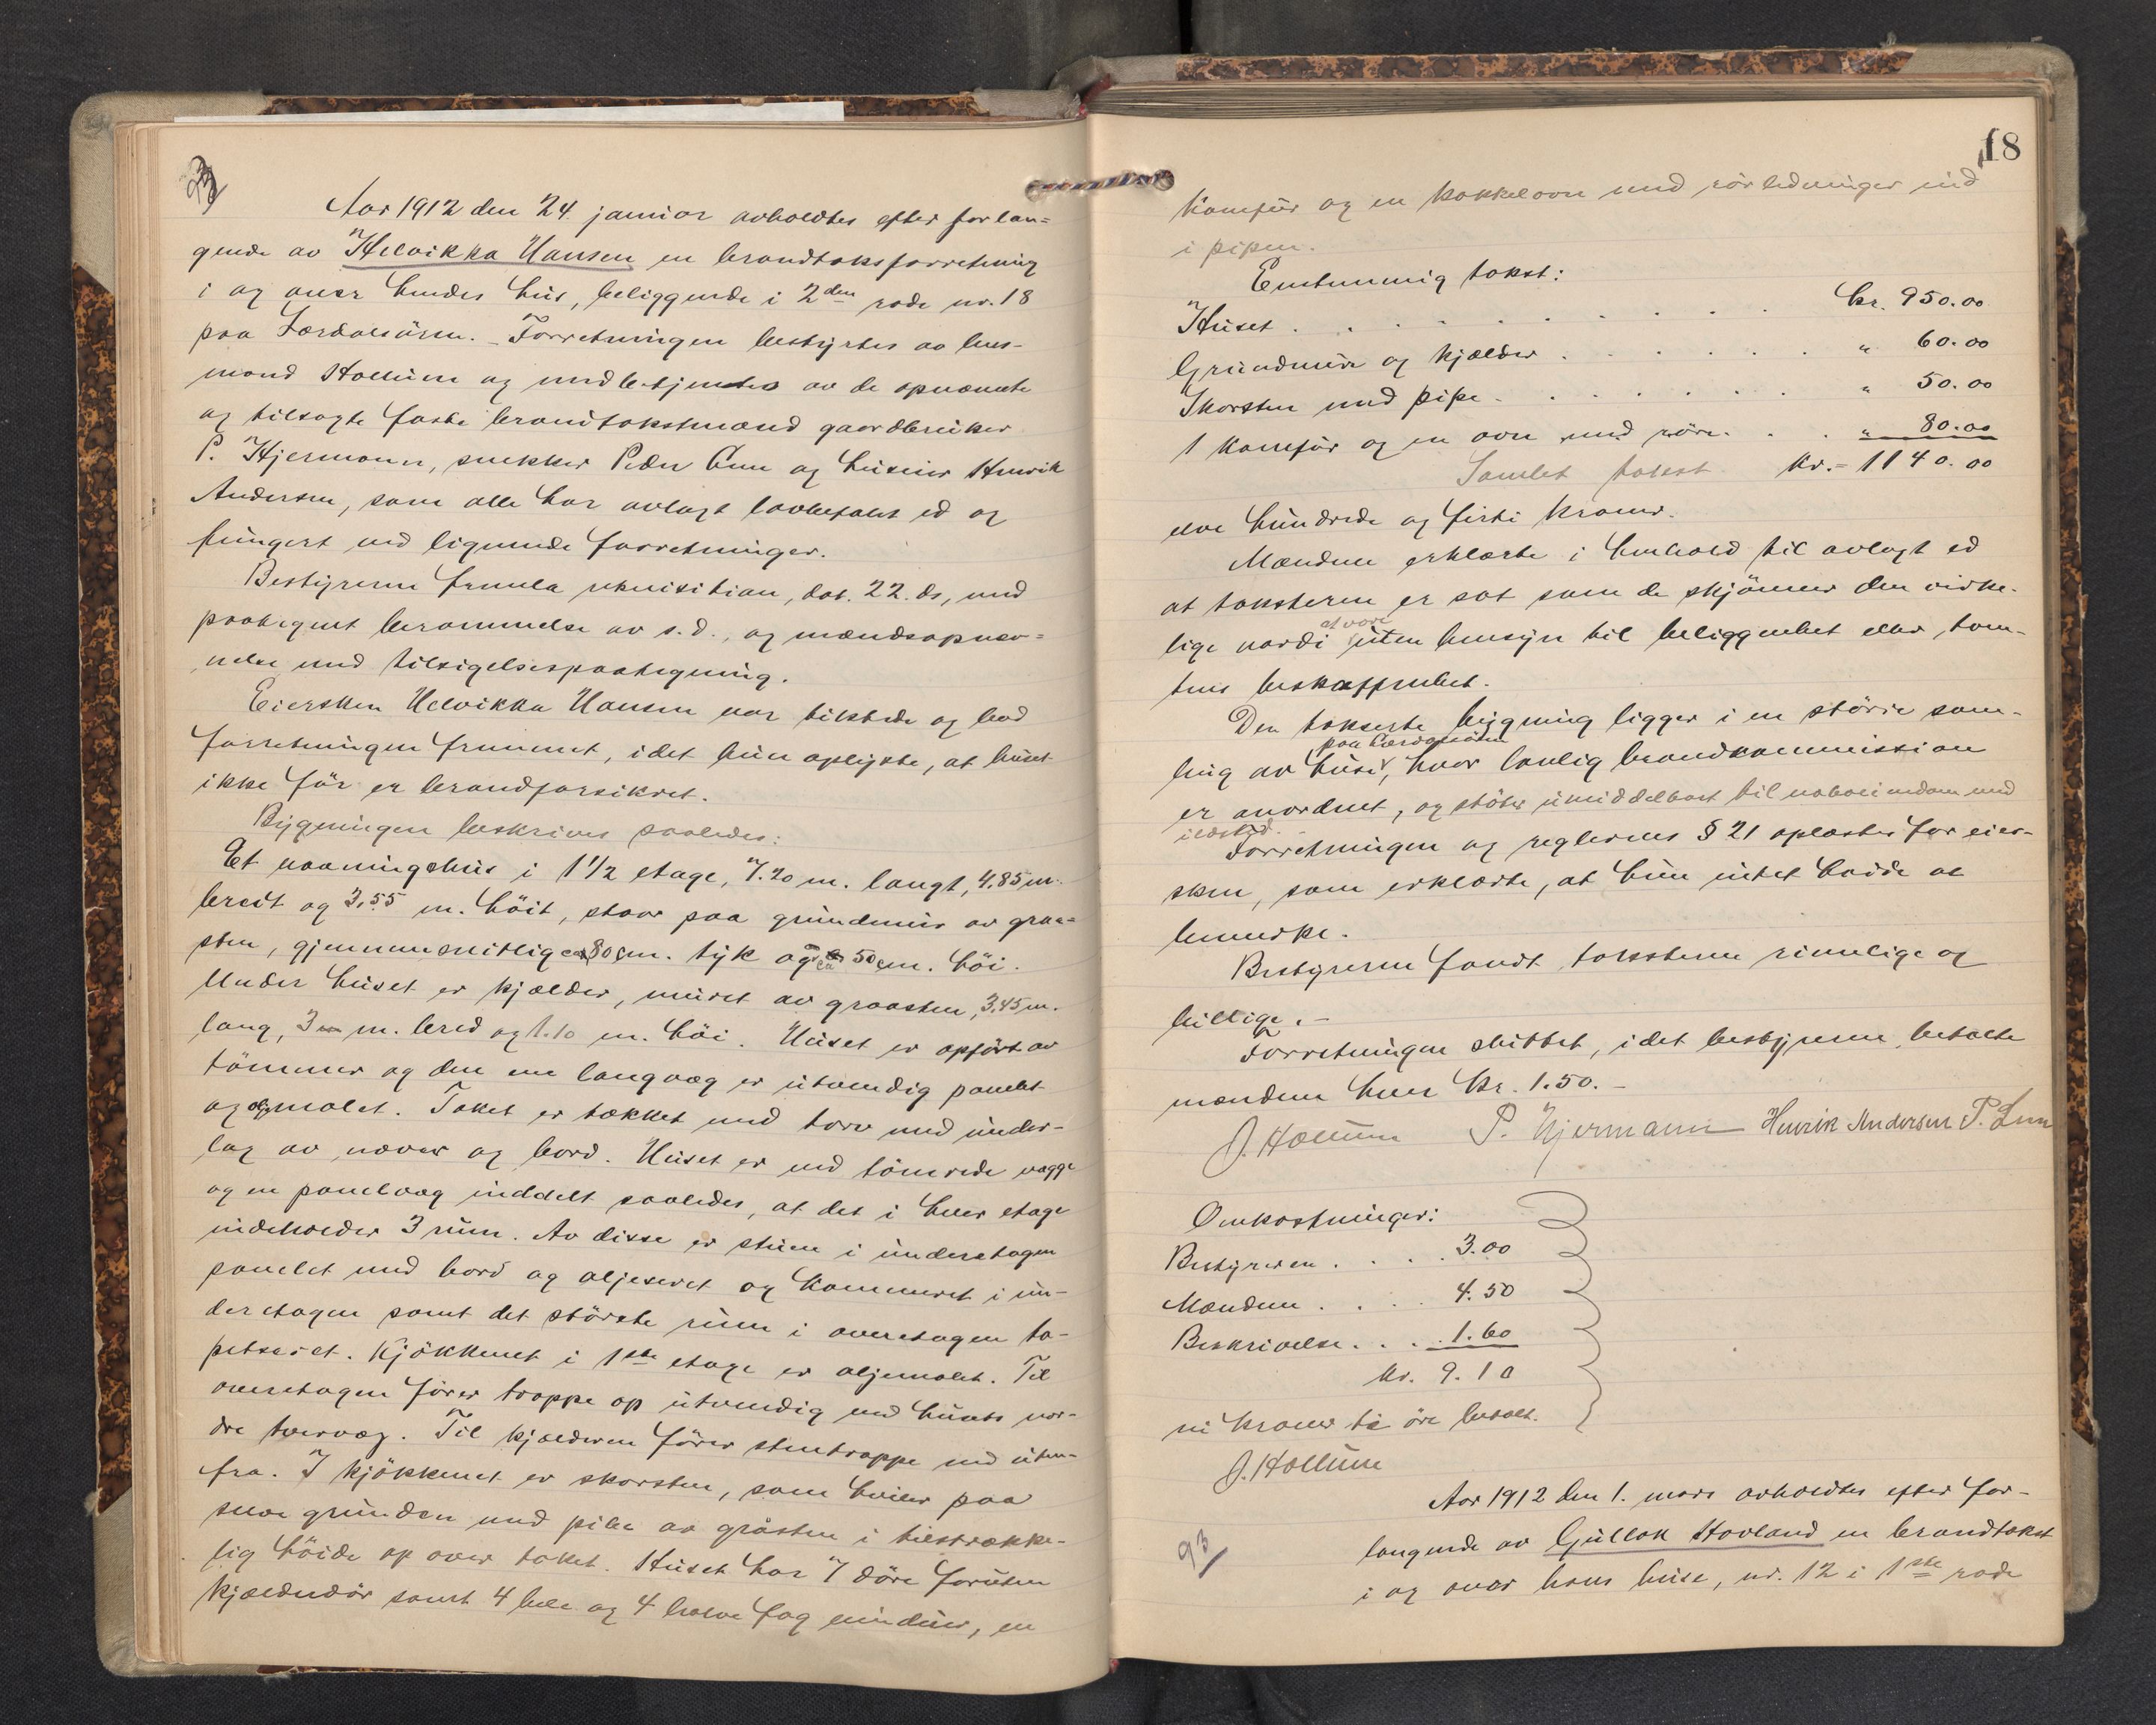 Aar 1912 den 24. januar avholdtes efter forlan=
gende av Helvikka Hansen en brandtakstforretning
i og over hendes hus, beliggende i 2den rode nr. 18
paa Lærdalsøren. – Forretningen bestyrtes av lens-
mand Hollum og medbetjentes av de opnævnte
og tilsagte faste brandtakstmænd gaardbruker
P. Hjermann, snekker Peder Lun og huseier Henrik
Andersen, som alle har avlagt lovbefalet ed og
fungert ved lignende forretninger.
Bestyreren fremla rekvisition, dat. 22. ds, med
paategnet berammelse av s.d., og mændsopnæv=
nelse med tilsigelsespaategning.
Eiersken Helvikka Hansen var tilstede og bad
forretningen fremmet, idet hun oplyste, at huset
ikke før er brandforsikret.
Bygningen beskrives saaledes:
Et vaaningshus i 1 1/2 etage, 7.20 m. langt, 4.85 m.
bredt og 3.55 m. høit, staar paa grundmur av graa=
sten, gjennemsnitlig ca 80 cm. tyk og ca 50 cm. høi.
Under huset er kjælder, muret av graasten, 3.45 m.
lang, 3 m. bred og 1.10 m. høi. Huset er opført av
tømmer og den ene langvæg er utvendig panelt
og oljemalet. Taket er tækket med torv med under-
lag av næver og bord. Huset er ved tømrede vægge
og en panelvæg inddelt saaledes, at det i hver etage
indeholder 3 rum. Av disse er stuen i underetagen
panelet med bord og oljeferet og kammeret i un-
deretagen samt det største rum i overetagen ta-
petseret. Kjøkkenet i 1ste etage er oljemalet. Til
overetagen fører trappe op utvendig ved husets nor-
dre tvervæg. Til kjælderen fører stentrappe ned uten-
fra. I kjøkkenet er skorsten, som hviler paa
selve grunden med pibe av gråsten i tilstrække-
lig høide op over taket. Huset har 7 døre foruten
kjælderdør samt 4 hele og 4 halve fag vinduer, en
18
komfur og en kakkelovn med rørledninger ind
i pipen.
Enstemmig takst:
Huset . . . . . . . . . . kr. 950.00
Grundmur og kjælder . . . . . . " 60.00
Skorsten med pipe . . . . . . . " 50.00
1 komfur og en ovn med rør . . . " 80.00
Samlet takst kr. = 1140.00
elve hundrede og firti kroner.
Mændene erklærte i henhold til avlagt ed
at taksterne er sat som de skjønner den virke-
lige værdi at være uten hensyn til beliggenhet eller tom-
tens beskaffenhet.
Den takserte bygning ligger i en større sam-
ling av huse paa Lærdalsøren, hvor lovlig brandkommission
er anordnet, og støter umiddelbart til naboeiendom med
ildsted.
Forretningen og reglernes § 21 oplæstes for eier-
sken, som erklærte, at hun intet hadde at
bemerke.
Bestyreren fandt taksterne rimelige og
billige. –
Forretningen sluttet, idet bestyreren betalte
mændene hver kr. 1.50. –
J. Hollum P. Hjermann Henrik Andersen P. Lun
Omkostninger:
Bestyreren . . . . 3.00
Mændene . . . . 4.50
Beskrivelse . . . . 1.60
kr. 9.10
ni kroner ti øre betalt.
J. Hollum
Aar 1912 den 1. mars avholdtes efter for-
93
langende av Gullak Hovland en brandtakst
i og over hans huse, nr. 12 i 1ste rode